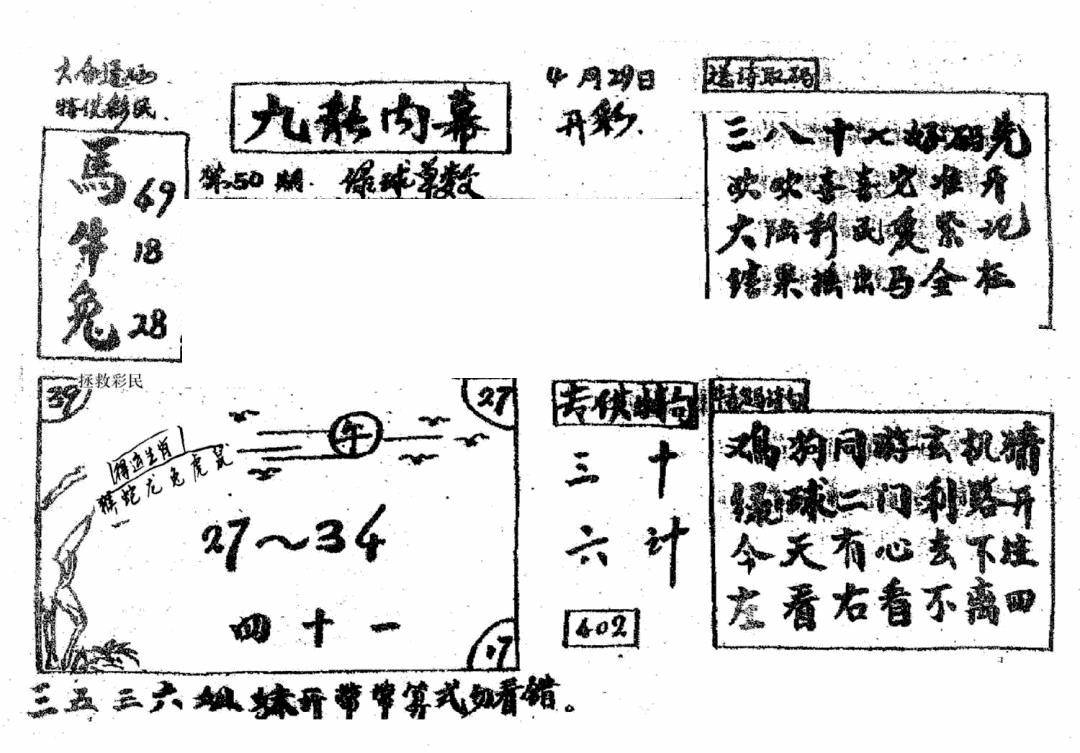 特供彩民
九龙内幕
第50期 绿球单数
4月29日
开彩
送诗取码
馬 69
牛 18
兔 28
三八十七好码先
欢欢喜喜它准开
大陆利民要紧记
结果摇出马全在
拯救彩民
39
27
午
猴蛇龙兔虎鼠
27～34
四十一
17
专供
三十
六计
402
鸡狗同游玄机猜
绿球二门利路开
今天有心去下注
左看右看不离四
三五三六姐妹开带带算式勿看错。